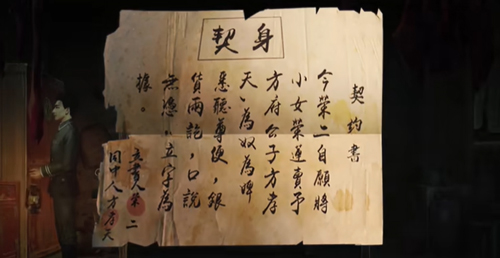 身契
契約書
今榮二自願將
小女榮蓮賣予
方府公子方孝
天,為奴為婢
悉聽尊便,銀
貨兩訖,口說
無憑,立字為
據。
立書人榮二
同中人方方天